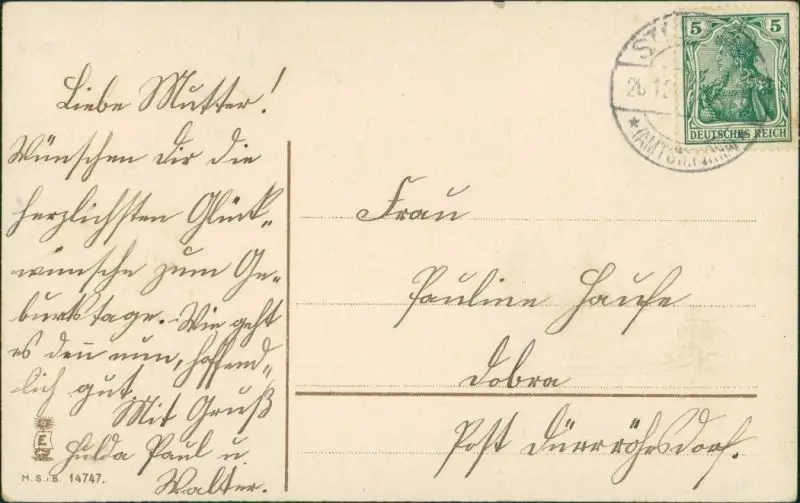 Liebe Mutter!
Wünschen dir die
herzlichsten Glück-
wünsche zum Ge-
burtstage. Wie geht
es den nun, hoffend-
lich gut.
Mit Gruß
Hulda Paul u.
Walter.
M.S.i.B. 14747.
5 5
DEUTSCHES REICH
Frau
Pauline Haufe
Dobra
Post Dürröhrsdorf.